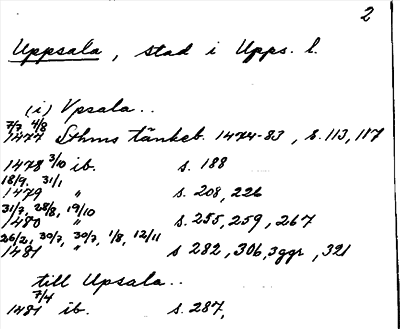 2
Uppsala, stad i Upps. l.
(i) Vpsala..
7/7 4/8
1477 Sthms tänkeb. 1474-83, s. 113, 117
1478 3/10 ib. s. 188
18/9. 31/1
1479 " s. 208, 226
31/7, 28/8, 19/10
1480 " s. 255, 259, 267
26/2, 30/7, 30/7, 1/8, 12/11
1481 " s 282, 306, 3ggr, 321
till Upsala..
7/4
1481 ib. s. 287,